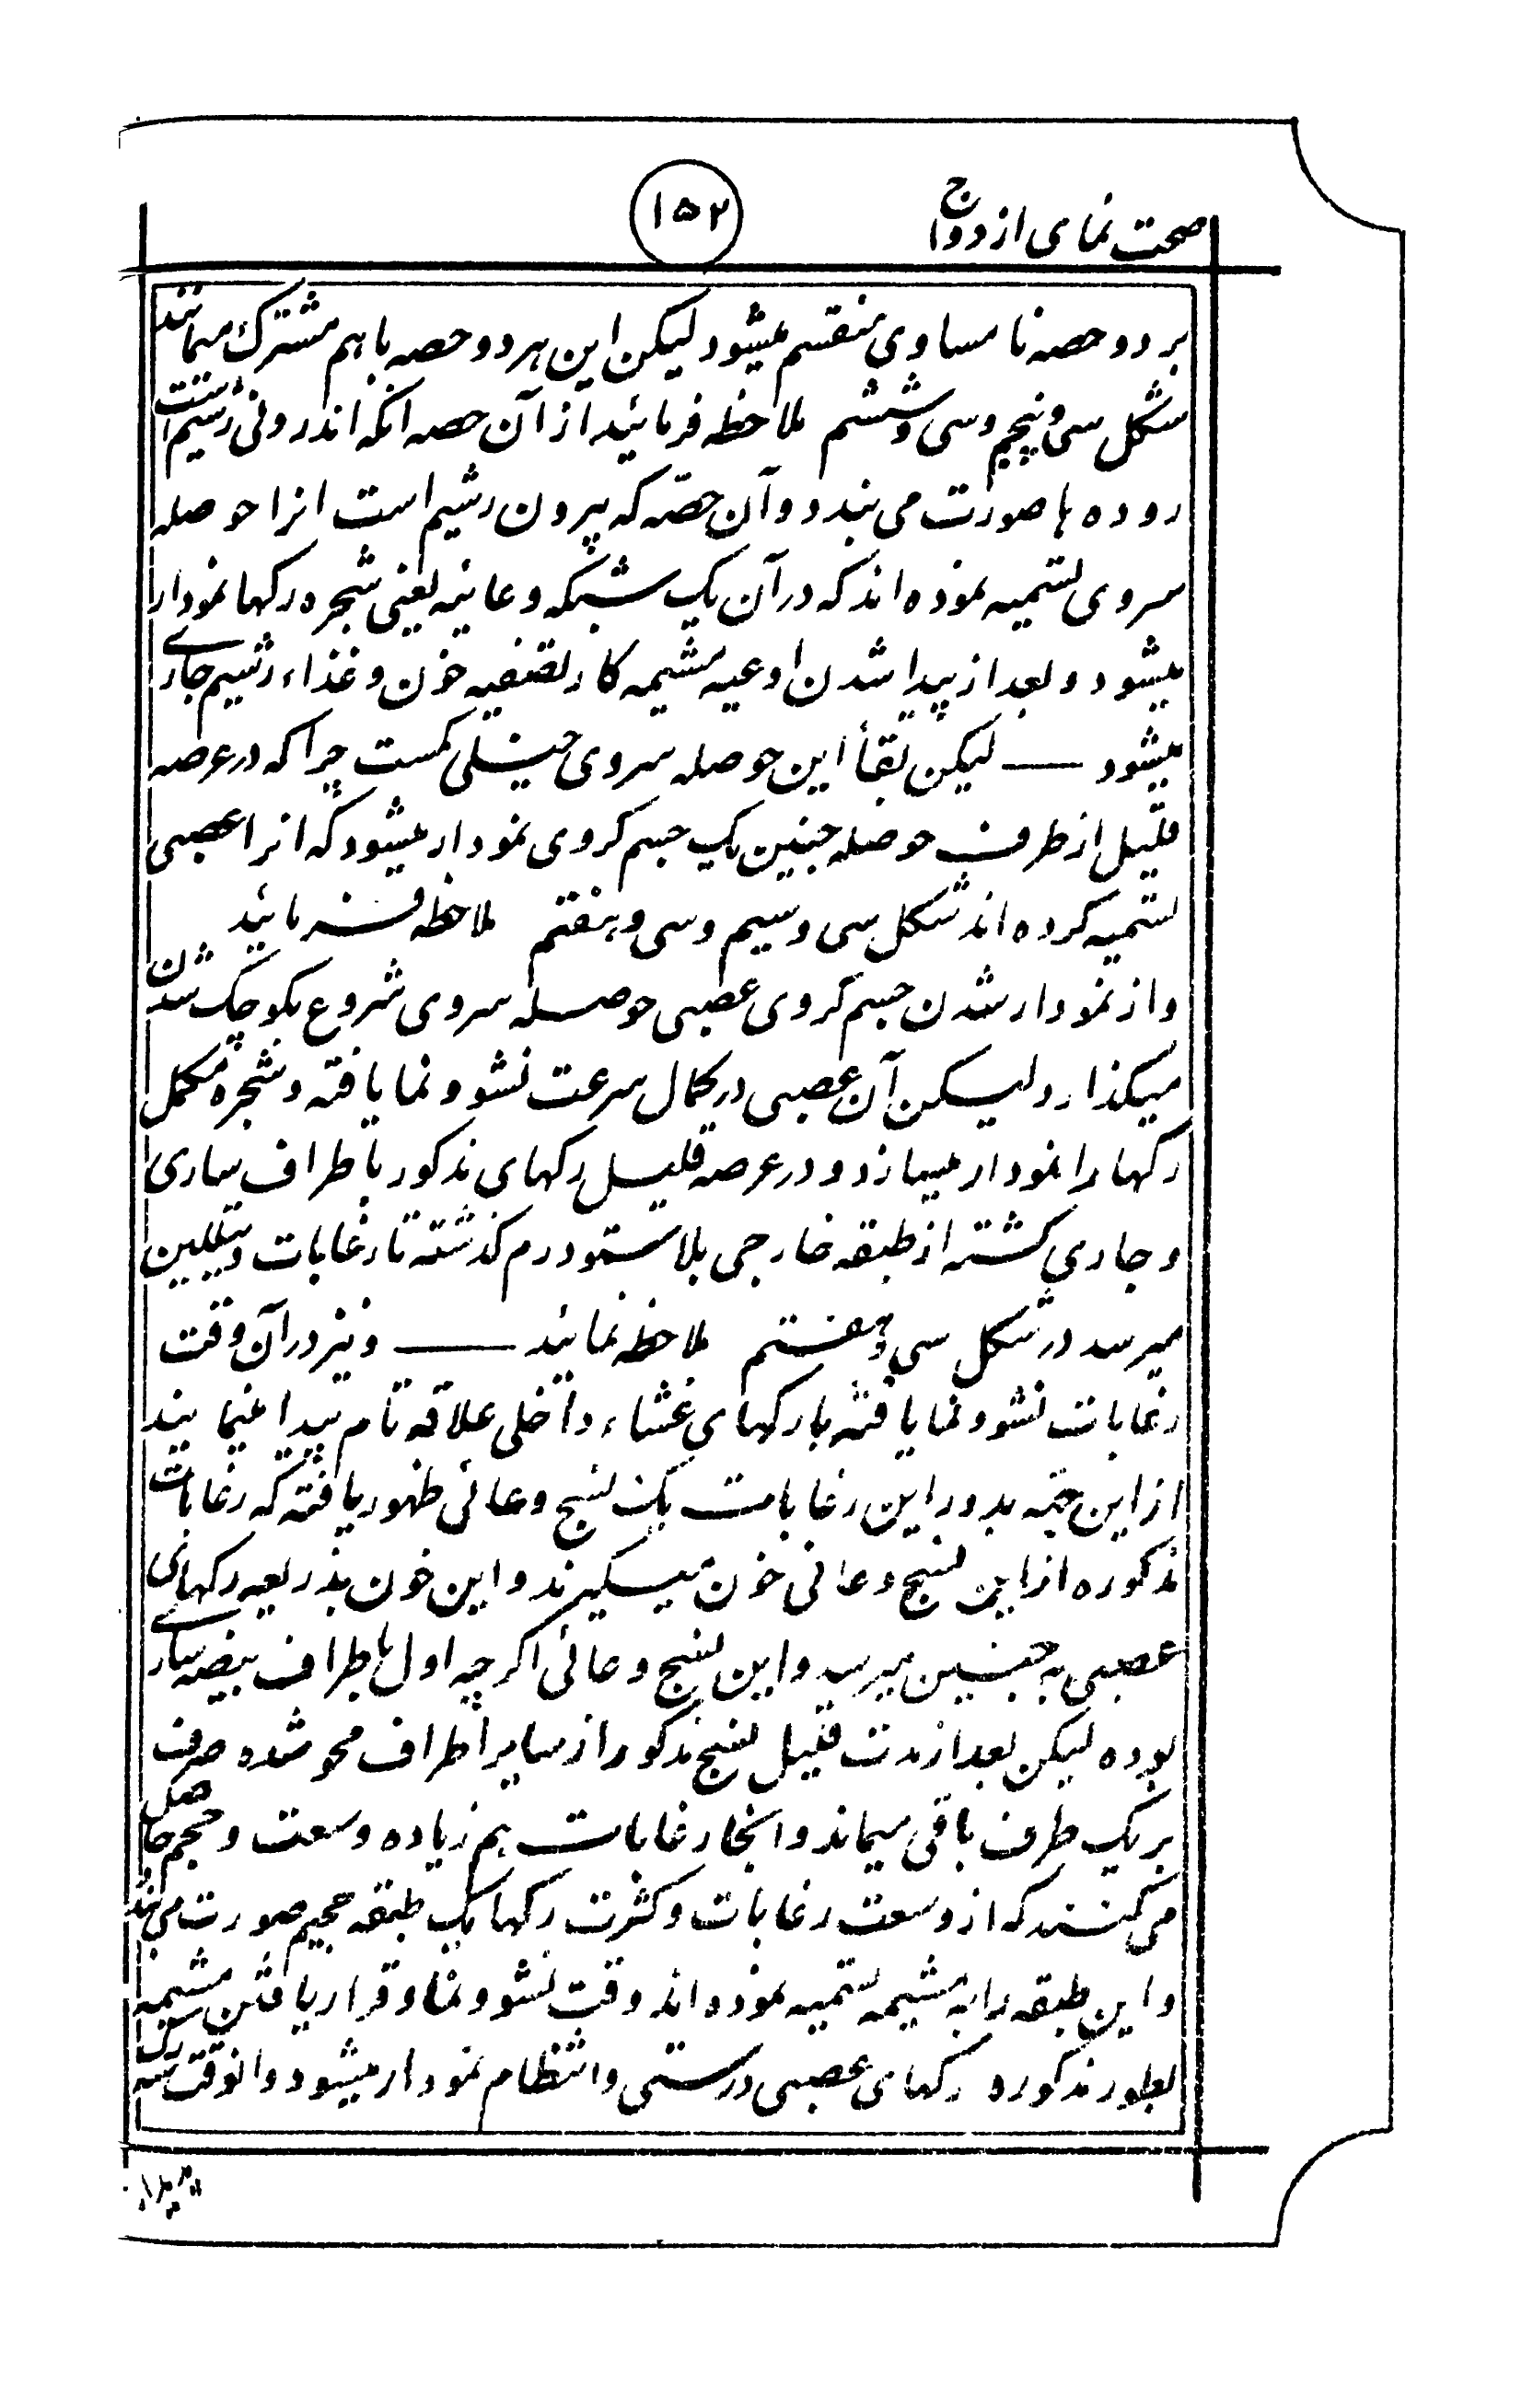 صحت نمای ازدواج
۱۵۲
بر دو حصه نا مساوی منقسم میشود لیکن این هر دو حصه با هم مشترک میمانند
شکل سی و پنجم وسی و ششم ملاحظه فرمائید از آن حصه انکه اندرونی رشیم است
روده ها صورت می بندد و آن حصّه که بیرون رشیم است انرا حوصله
سروی تسمیه نموده اند که در آن یک شبکه وعائیه یعنی شجره رکها نمودار
میشود و بعد از پیدا شدن اوعیه مشیمه کار تصفیه خون و غذاء رشیم جاری
میشود — لیکن بقأ این حوصله سروی خیلی کمست چرا که در عرصه
قلیل از طرف حوصله جنین یک جسم کروی نمودار میشود که انرا عصبی
تسمیه کرده اند شکل سی وسیم وسی و هفتم ملاحظه فرمائید
و از نمودار شدن جسم کروی عصبی حوصله سروی شروع بکوچک شدن
میکذارد لیکن آن عصبی در کمال سرعت نشو و نما یافته و شجره مکمل
رکها را نمودار میسازد و در عرصه قلیل رکهای مذکور باطراف ساری
و جاری کشته از طبقه خارجی بلاستودرم کذشته تا رغابات
میرسد در شکل سی و هفتم ملاحظه نمائید — و نیز در آن وقت
رغابات نشو و نما یافته با رکهای غشاء داخلی علاقه تام پیدا مینمایند
از این جهه بدور این رغابات یک نسج وعائی ظهور یافته که رغابات
مذکوره از این نسج وعائی خون میکیرند و این خون بذریعه رکهای
عصبی به جنین میرسد و این نسج وعائی اکر چه اول باطراف بیضه ساری
بوده لیکن بعد از مدت قلیل نسج مذکور از سایر اطراف محو شده صرف
بر یک طرف باقی میماند و انجا رغابات هم زیاده وسعت و حجم حاصل
می کنند که از وسعت رغابات و کثرت رکها یک طبقه حجیم صورت می بندد
و این طبقه را به مشیمه تسمیه نموده اند وقت نشو و نما و قرار یافتن مشیمه
بطور مذکوره رکهای عصبی درستی و انتظام نمودار میشود و انوقت سه رک